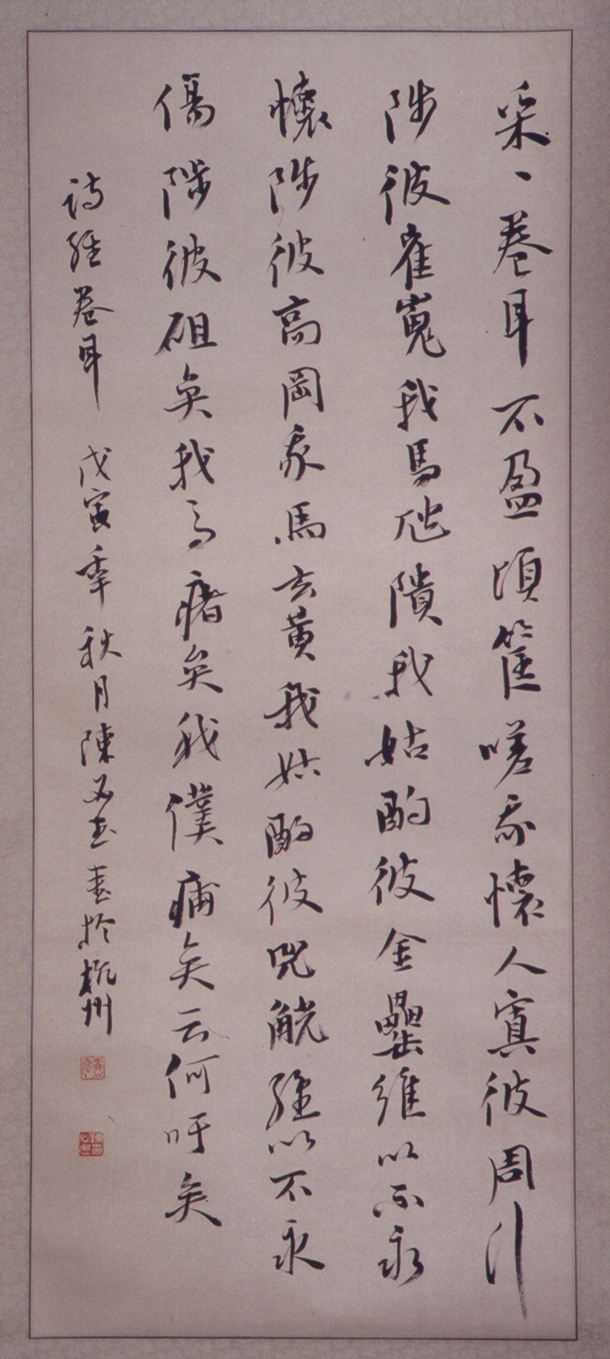 采、卷耳不盈頃筐嗟我懷人寘彼周行
陟彼崔嵬我馬虺隤我姑酌彼金罍維以不永
懷陟彼高岡我馬玄黃我姑酌彼兕觥維以不永
傷陟彼砠矣我馬瘏矣我僕痡矣云何吁矣
詩經卷耳 戊寅年秋月陳 書於杭州